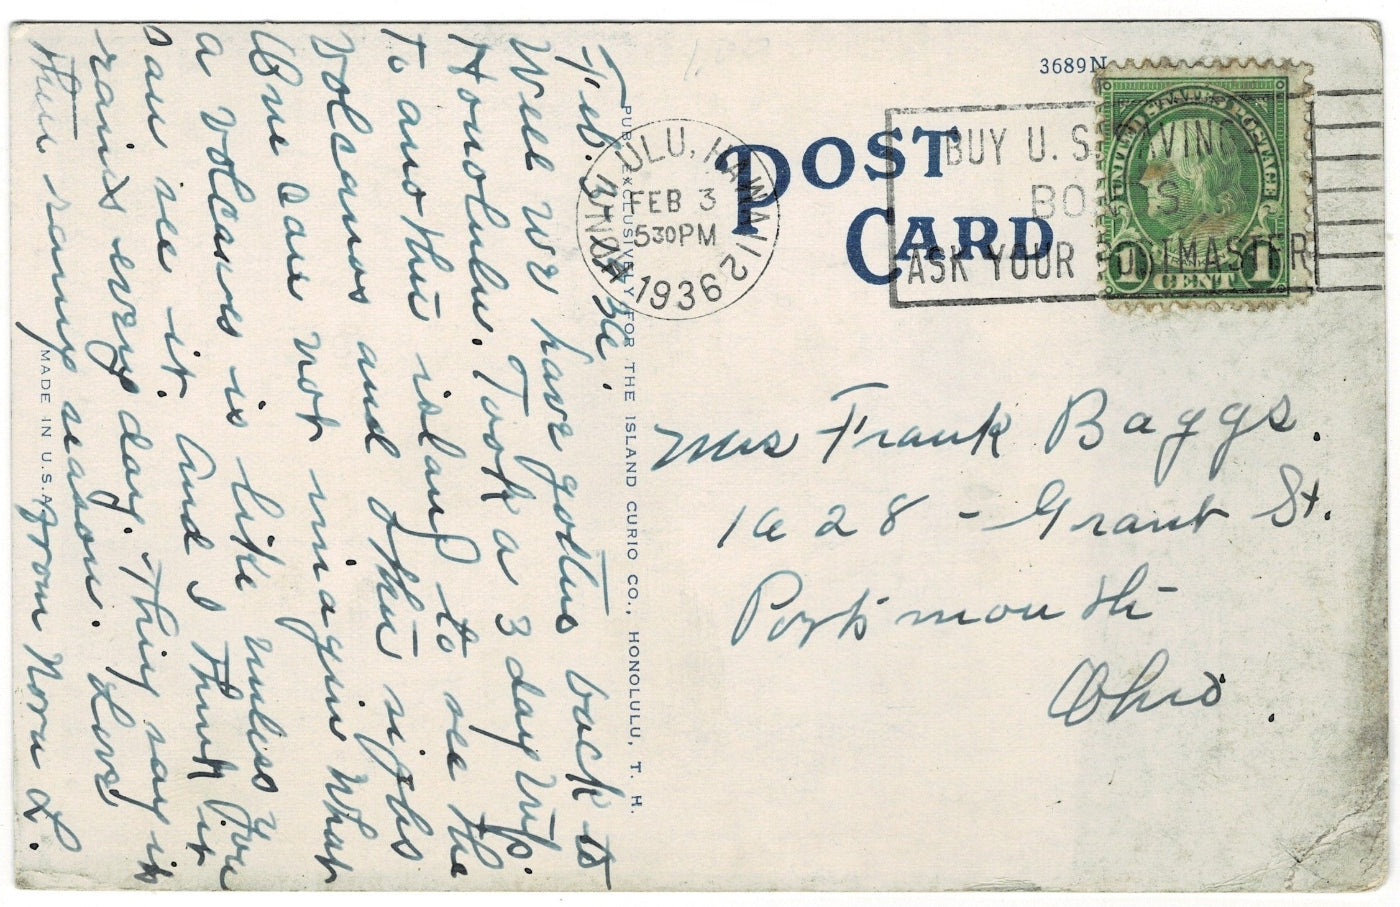 3689N
POST
CARD
HONOLULU, HAWAII 2
FEB 3
530PM
1936
BUY U. S. SAVINGS
BONDS
ASK YOUR POSTMASTER
UNITED STATES POSTAGE
1 CENT 1
Feb. 3. 36.
Well we have gotten back to
Honolulu. Took a 3 day trip.
To another island to see the
Volcanos and other sights
One can not imagin what
a volcanos is like unless you
can see it. And I think it
rains every day. They say it
their rainy season. Love
From Nora L.
PUB. EXCLUSIVELY FOR THE ISLAND CURIO CO., HONOLULU, T. H.
MADE IN U.S.A.
Mrs Frank Baggs.
1628 - Grant St.
Portsmouth
Ohio.